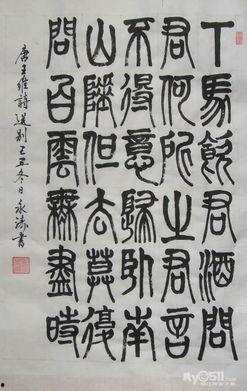 下馬飲君酒問
君何所之君言
不得意歸臥南
山陲但去莫復
問白雲無盡時
唐王維詩送别己丑冬日永書
my0511